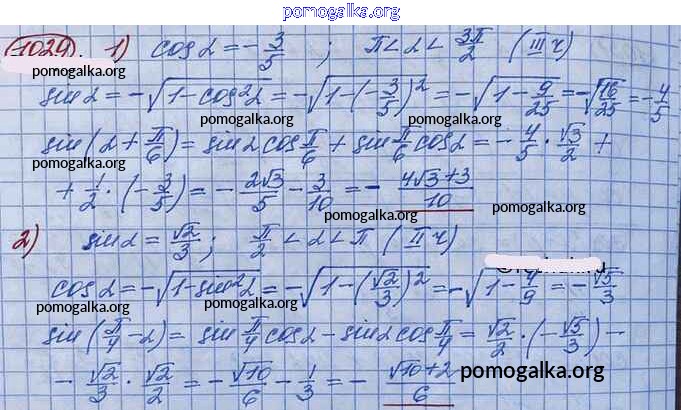 pomogalka.org
1029. 1) cos α = -3/5 ; π < α < 3π/2 (III ч)
pomogalka.org
sin α = -√(1-cos²α) = -√(1-(-3/5)²) = -√(1-9/25) = -√(16/25) = -4/5
pomogalka.org pomogalka.org
sin(α + π/6) = sin α cos π/6 + sin π/6 cos α = -4/5 · √3/2 +
pomogalka.org pomogalka.org
+ 1/2 · (-3/5) = - 2√3/5 - 3/10 = - (4√3+3)/10
pomogalka.org pomogalka.org
2) sin α = √2/3 ; π/2 < α < π (II ч)
cos α = -√(1-sin²α) = -√(1-(√2/3)²) = -√(1-4/9) = -√5/3
pomogalka.org pomogalka.org pomogalka.org
sin(π/4 - α) = sin π/4 cos α - sin α cos π/4 = √2/2 · (-√5/3) -
- √2/3 · √2/2 = - √10/6 - 1/3 = - (√10+2)/6
pomogalka.org